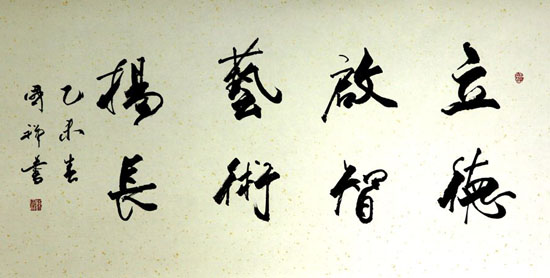 立德
啟智
藝術
揚長
乙未春
國祥書